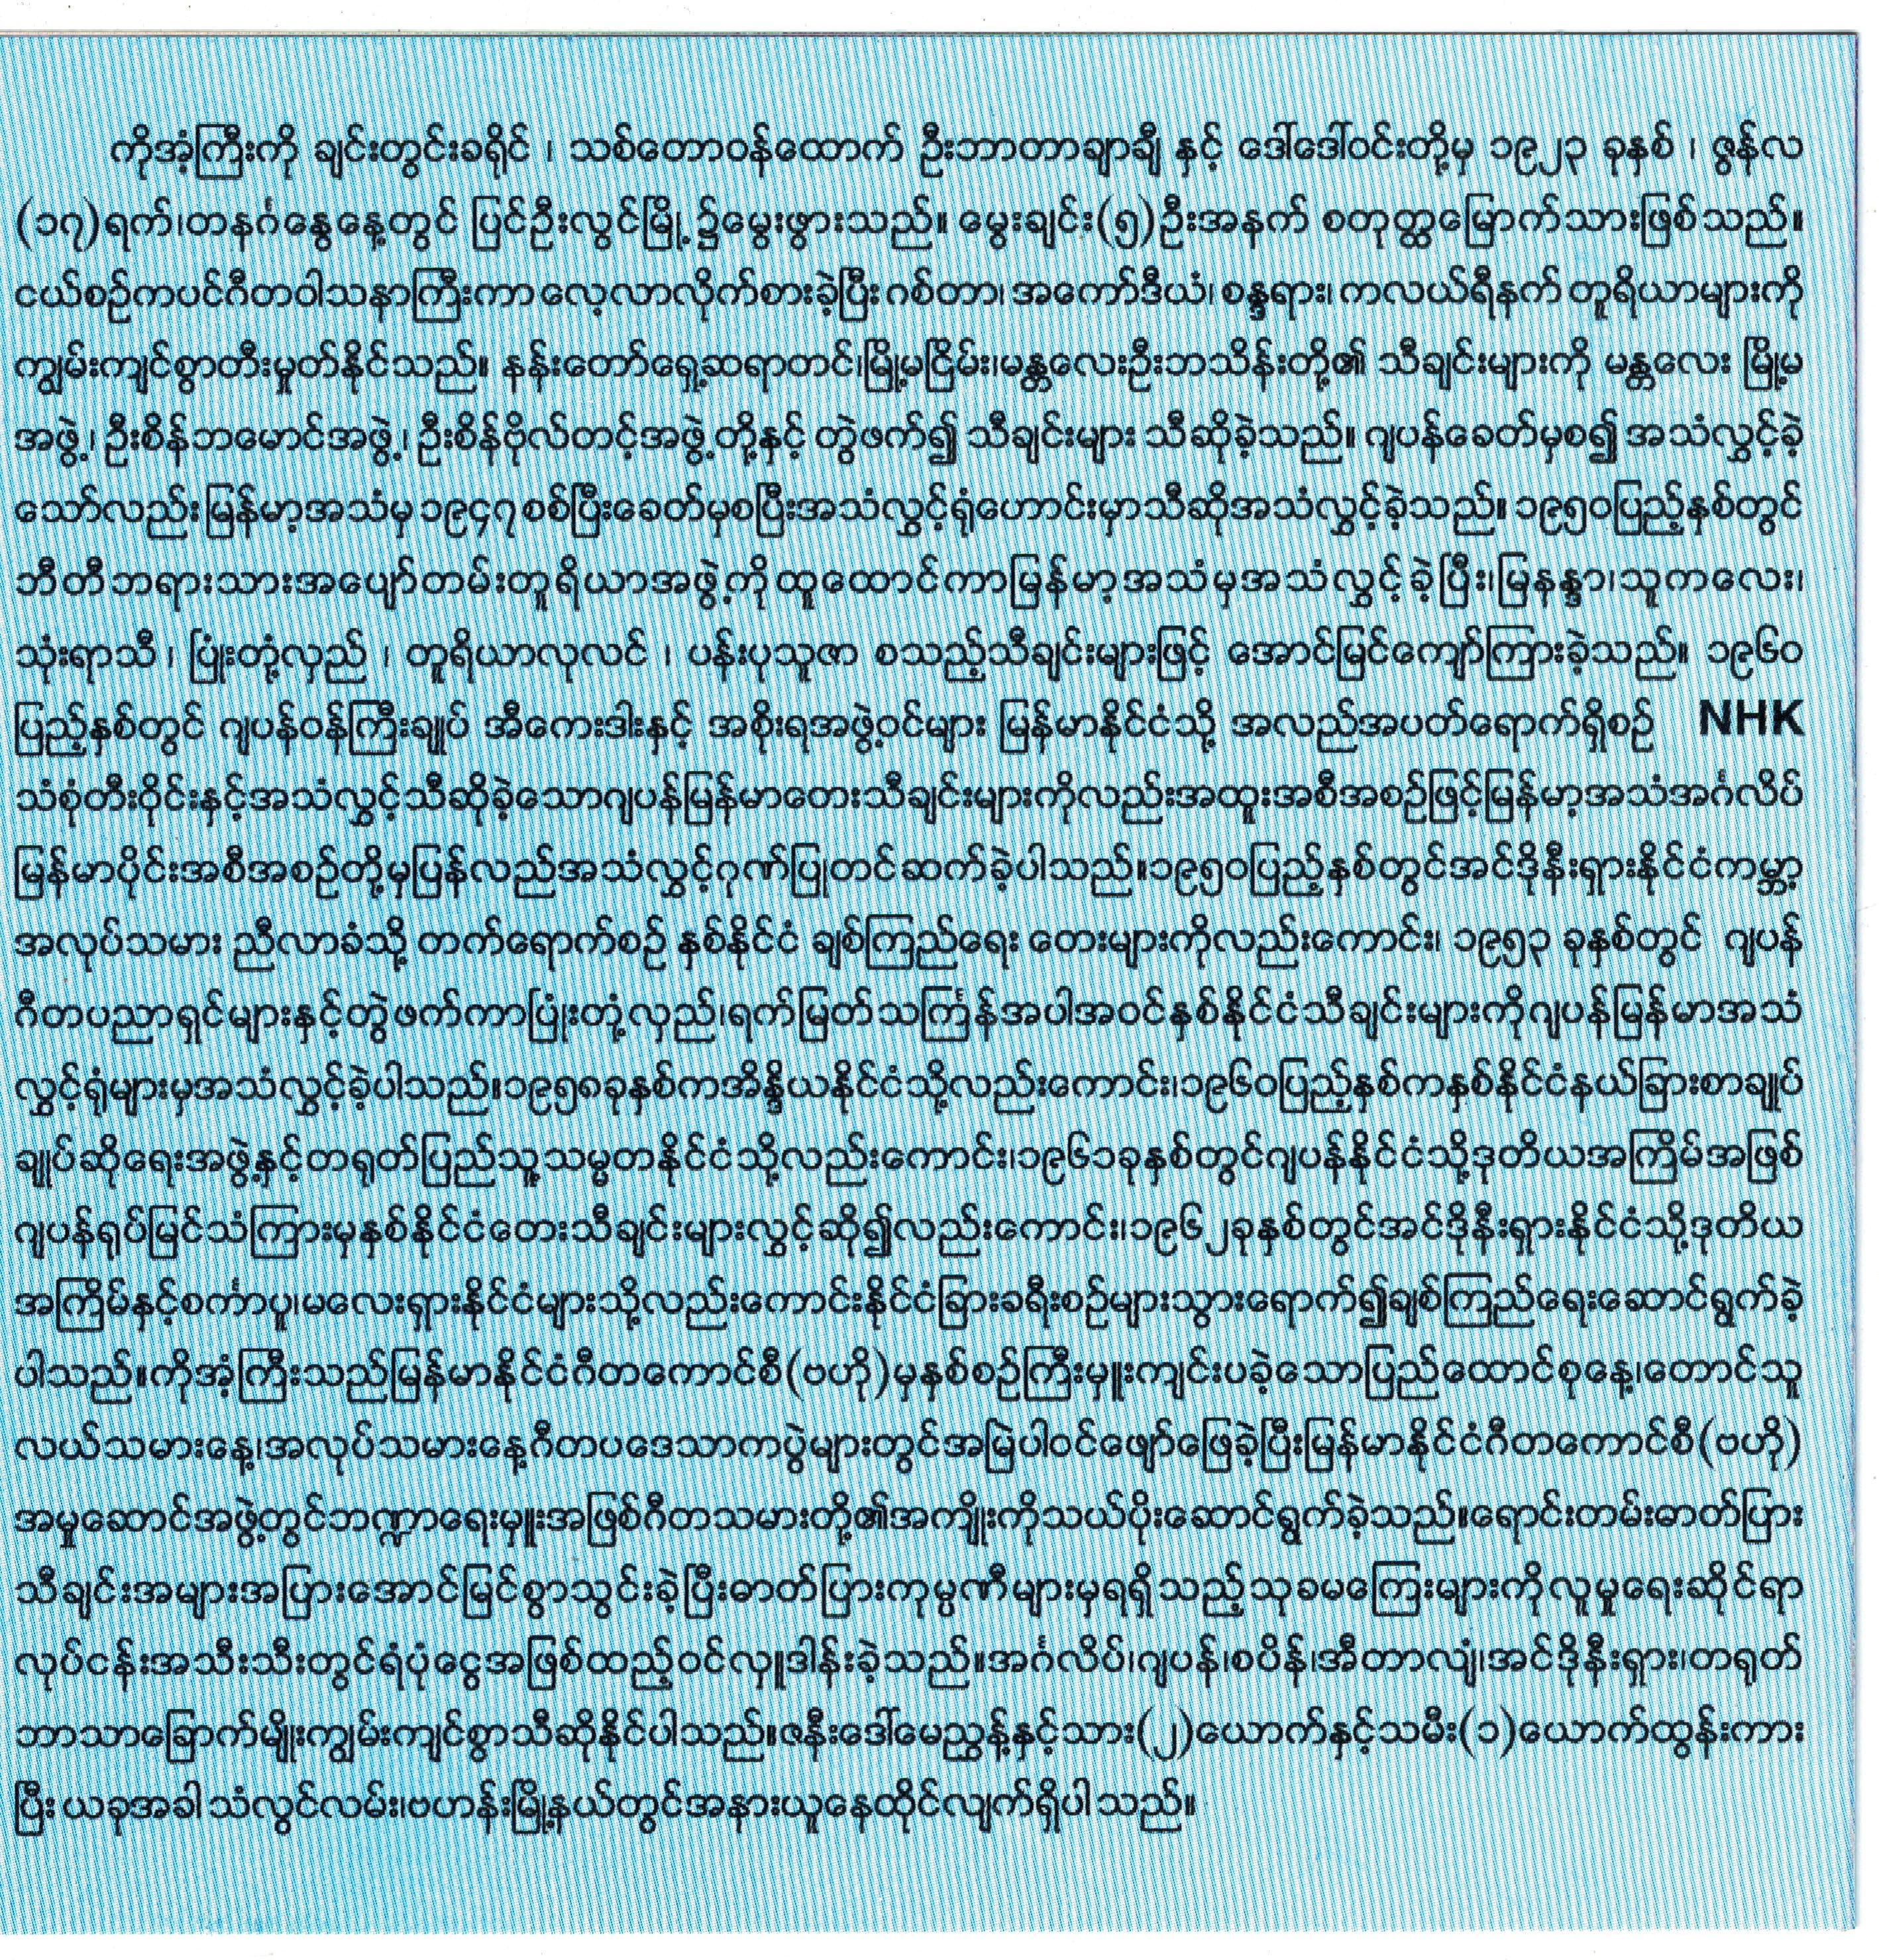 ကိုအံ့ကြီးကို ချင်းတွင်းခရိုင် ၊ သစ်တောဝန်ထောက် ဦးဘာတာချာချီ နှင့် ဒေါ်ဒေါ်ဝင်းတို့မှ ၁၉၂၃ ခုနှစ် ၊ ဇွန်လ
(၁၇)ရက်၊တနင်္ဂနွေနေ့တွင် ပြင်ဦးလွင်မြို့၌မွေးဖွားသည်။ မွေးချင်း(၅)ဦးအနက် စတုတ္ထမြောက်သားဖြစ်သည်။
ငယ်စဉ်ကပင်ဂီတဝါသနာကြီးကာ လေ့လာလိုက်စားခဲ့ပြီး ဂစ်တာ၊ အကော်ဒီယံ၊ စန္ဒရား၊ ကလယ်ရီနက် တူရိယာများကို
ကျွမ်းကျင်စွာတီးမှုတ်နိုင်သည်။ နန်းတော်ရှေ့ဆရာတင်၊မြို့မငြိမ်း၊မန္တလေးဦးဘသိန်းတို့၏ သီချင်းများကို မန္တလေး မြို့မ
အဖွဲ့၊ ဦးစိန်ဘမောင်အဖွဲ့၊ ဦးစိန်ဗိုလ်တင့်အဖွဲ့ တို့နှင့် တွဲဖက်၍ သီချင်းများ သီဆိုခဲ့သည်။ ဂျပန်ခေတ်မှစ၍ အသံလွှင့်ခဲ့
သော်လည်း မြန်မာ့အသံမှ ၁၉၄၇ စစ်ပြီးခေတ်မှစပြီးအသံလွှင့်ရုံဟောင်းမှာသီဆိုအသံလွှင့်ခဲ့သည်။ ၁၉၅၀ပြည့်နှစ်တွင်
ဘီတီဘရားသားအပျော်တမ်းတူရိယာအဖွဲ့ကို ထူထောင်ကာမြန်မာ့အသံမှအသံလွှင့်ခဲ့ပြီး၊မြနန္ဒာ၊သူကလေး၊
သုံးရာသီ ၊ ပြုံးတုံ့လှည် ၊ တူရိယာလုလင် ၊ ပန်းပုသူဇာ စသည့်သီချင်းများဖြင့် အောင်မြင်ကျော်ကြားခဲ့သည်။ ၁၉၆၀
ပြည့်နှစ်တွင် ဂျပန်ဝန်ကြီးချုပ် အီကေးဒါးနှင့် အစိုးရအဖွဲ့ဝင်များ မြန်မာနိုင်ငံသို့ အလည်အပတ်ရောက်ရှိစဉ် NHK
သံစုံတီးဝိုင်းနှင့်အသံလွှင့်သီဆိုခဲ့သောဂျပန်မြန်မာတေးသီချင်းများကိုလည်းအထူးအစီအစဉ်ဖြင့်မြန်မာ့အသံအင်္ဂလိပ်
မြန်မာပိုင်းအစီအစဉ်တို့မှပြန်လည်အသံလွှင့်ဂုဏ်ပြုတင်ဆက်ခဲ့ပါသည်။၁၉၅၀ပြည့်နှစ်တွင်အင်ဒိုနီးရှားနိုင်ငံကမ္ဘာ့
အလုပ်သမား ညီလာခံသို့ တက်ရောက်စဉ် နှစ်နိုင်ငံ ချစ်ကြည်ရေး တေးများကိုလည်းကောင်း၊ ၁၉၅၃ ခုနှစ်တွင် ဂျပန်
ဂီတပညာရှင်များနှင့်တွဲဖက်ကာပြုံးတုံ့လှည်၊ရက်မြတ်သင်္ကြန်အပါအဝင်နှစ်နိုင်ငံသီချင်းများကိုဂျပန်မြန်မာအသံ
လွှင့်ရုံများမှအသံလွှင့်ခဲ့ပါသည်။၁၉၅၈ခုနှစ်ကအိန္ဒိယနိုင်ငံသို့လည်းကောင်း၊၁၉၆၀ပြည့်နှစ်ကနှစ်နိုင်ငံနယ်ခြားစာချုပ်
ချုပ်ဆိုရေးအဖွဲ့နှင့်တရုတ်ပြည်သူ့သမ္မတနိုင်ငံသို့လည်းကောင်း၊၁၉၆၁ခုနှစ်တွင်ဂျပန်နိုင်ငံသို့ဒုတိယအကြိမ်အဖြစ်
ဂျပန်ရုပ်မြင်သံကြားမှနှစ်နိုင်ငံတေးသီချင်းများလွှင့်ဆို၍လည်းကောင်း၊၁၉၆၂ခုနှစ်တွင်အင်ဒိုနီးရှားနိုင်ငံသို့ဒုတိယ
အကြိမ်နှင့်စင်္ကာပူ၊မလေးရှားနိုင်ငံများသို့လည်းကောင်းနိုင်ငံခြားခရီးစဉ်များသွားရောက်၍ချစ်ကြည်ရေးဆောင်ရွက်ခဲ့
ပါသည်။ကိုအံ့ကြီးသည်မြန်မာနိုင်ငံဂီတကောင်စီ(ဗဟို)မှနှစ်စဉ်ကြီးမှူးကျင်းပခဲ့သောပြည်ထောင်စုနေ့၊တောင်သူ
လယ်သမားနေ့၊အလုပ်သမားနေ့ဂီတပဒေသာကပွဲများတွင်အမြဲပါဝင်ဖျော်ဖြေခဲ့ပြီးမြန်မာနိုင်ငံဂီတကောင်စီ(ဗဟို)
အမှုဆောင်အဖွဲ့တွင်ဘဏ္ဍာရေးမှူးအဖြစ်ဂီတသမားတို့၏အကျိုးကိုသယ်ပိုးဆောင်ရွက်ခဲ့သည်။ရောင်းတမ်းဓာတ်ပြား
သီချင်းအများအပြားအောင်မြင်စွာသွင်းခဲ့ပြီးဓာတ်ပြားကုမ္ပဏီများမှရရှိသည့်သုခမကြေးများကိုလူမှုရေးဆိုင်ရာ
လုပ်ငန်းအသီးသီးတွင်ရံပုံငွေအဖြစ်ထည့်ဝင်လှူဒါန်းခဲ့သည်။အင်္ဂလိပ်၊ဂျပန်၊စပိန်၊အီတာလျံ၊အင်ဒိုနီးရှား၊တရုတ်
ဘာသာခြောက်မျိုးကျွမ်းကျင်စွာသီဆိုနိုင်ပါသည်။ဇနီးဒေါ်မေညွှန့်နှင့်သား(၂)ယောက်နှင့်သမီး(၁)ယောက်ထွန်းကား
ပြီး ယခုအခါ သံလွင်လမ်း၊ဗဟန်းမြို့နယ်တွင်အနားယူနေထိုင်လျက်ရှိပါသည်။